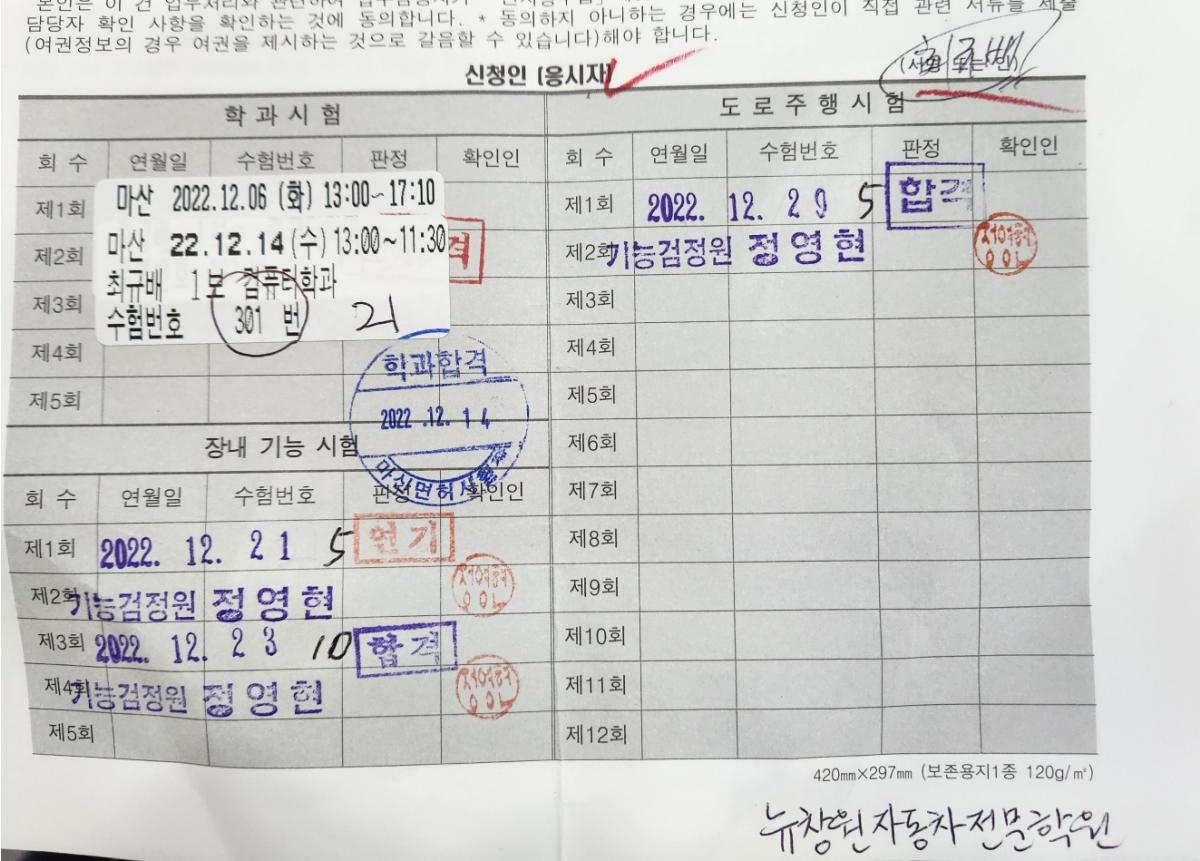 담당자 확인 사항을 확인하는 것에 동의합니다. * 동의하지 아니하는 경우에는 신청인이 직접 관련 서류를 제출
(여권정보의 경우 여권을 제시하는 것으로 갈음할 수 있습니다)해야 합니다.
신청인 (응시자)
최규배
(서명 또는 인)
학과시험
회 수 연월일 수험번호 판정 확인인
제1회
제2회
제3회
제4회
제5회
마산 2022.12.06 (화) 13:00~17:10
마산 22.12.14 (수) 13:00~11:30
최규배 1보 컴퓨터학과
수험번호 301 번 21
격
학과합격
2022.12.14
마산면허시험장
장내 기능 시험
회 수 연월일 수험번호 판정 확인인
제1회 2022. 12. 21 5 연기
제2회 기능검정원 정영현
제3회 2022. 12. 23 10 합격
제4회 기능검정원 정영현
제5회
도로주행시험
회 수 연월일 수험번호 판정 확인인
제1회 2022. 12. 29 5 합격
제2회 기능검정원 정영현
제3회
제4회
제5회
제6회
제7회
제8회
제9회
제10회
제11회
제12회
420㎜×297㎜ (보존용지1종 120g/㎡)
뉴창원자동차전문학원